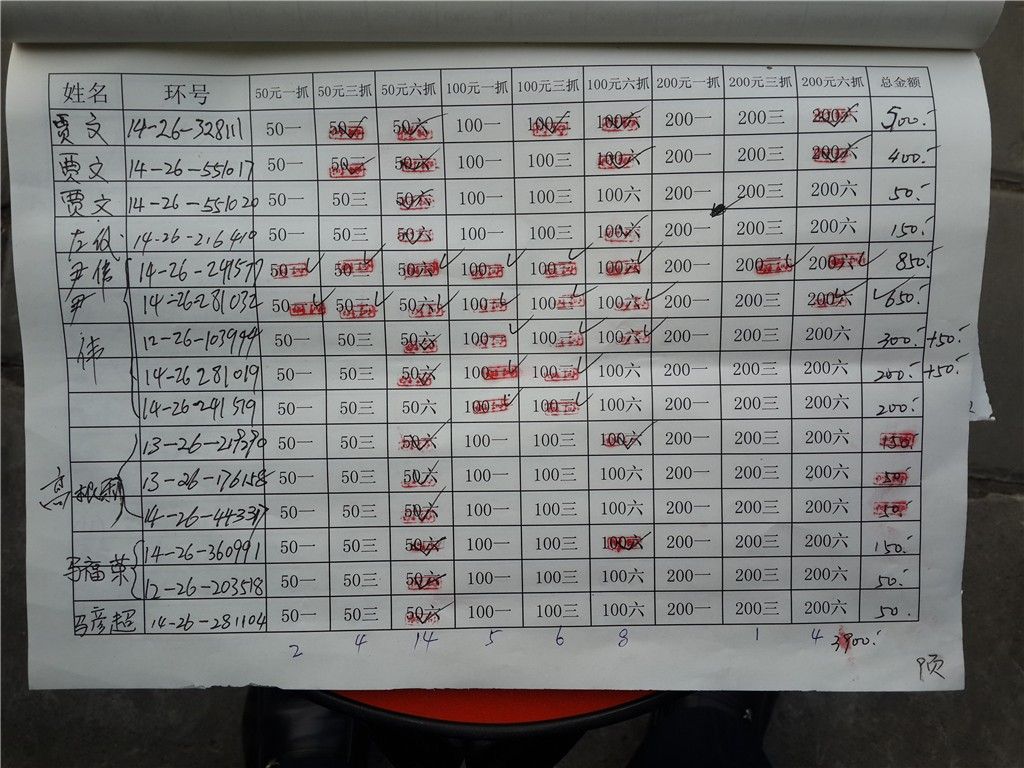 姓名 环号 50元一抓 50元三抓 50元六抓 100元一抓 100元三抓 100元六抓 200元一抓 200元三抓 200元六抓 总金额
贾文 14-26-328111 50一 50三 50六 100一 100三 100六 200一 200三 200六 500.-
贾文 14-26-551017 50一 50三 50六 100一 100三 100六 200一 200三 200六 400.-
贾文 14-26-551020 50一 50三 50六 100一 100三 100六 200一 200三 200六 50.-
14-26-216419 50一 50三 50六 100一 100三 100六 200一 200三 200六 150.-
尹伟 14-26-241577 50一 50三 50六 100一 100三 100六 200一 200三 200六 850.-
尹 14-26-281032 50一 50三 50六 100一 100三 100六 200一 200三 200六 650.-
伟 12-26-103944 50一 50三 50六 100一 100三 100六 200一 200三 200六 300.- +50.-
14-26 281019 50一 50三 50六 100一 100三 100六 200一 200三 200六 200.- +50.-
14-26-241579 50一 50三 50六 100一 100三 100六 200一 200三 200六 200.-
13-26-219390 50一 50三 50六 100一 100三 100六 200一 200三 200六 150.-
13-26-176158 50一 50三 50六 100一 100三 100六 200一 200三 200六 50.-
14-26-443317 50一 50三 50六 100一 100三 100六 200一 200三 200六 50.-
马福荣 14-26-360991 50一 50三 50六 100一 100三 100六 200一 200三 200六 150.-
12-26-203518 50一 50三 50六 100一 100三 100六 200一 200三 200六 50.-
马彦超 14-26-281104 50一 50三 50六 100一 100三 100六 200一 200三 200六 50.
2 4 14 5 6 8 1 4 3900.-